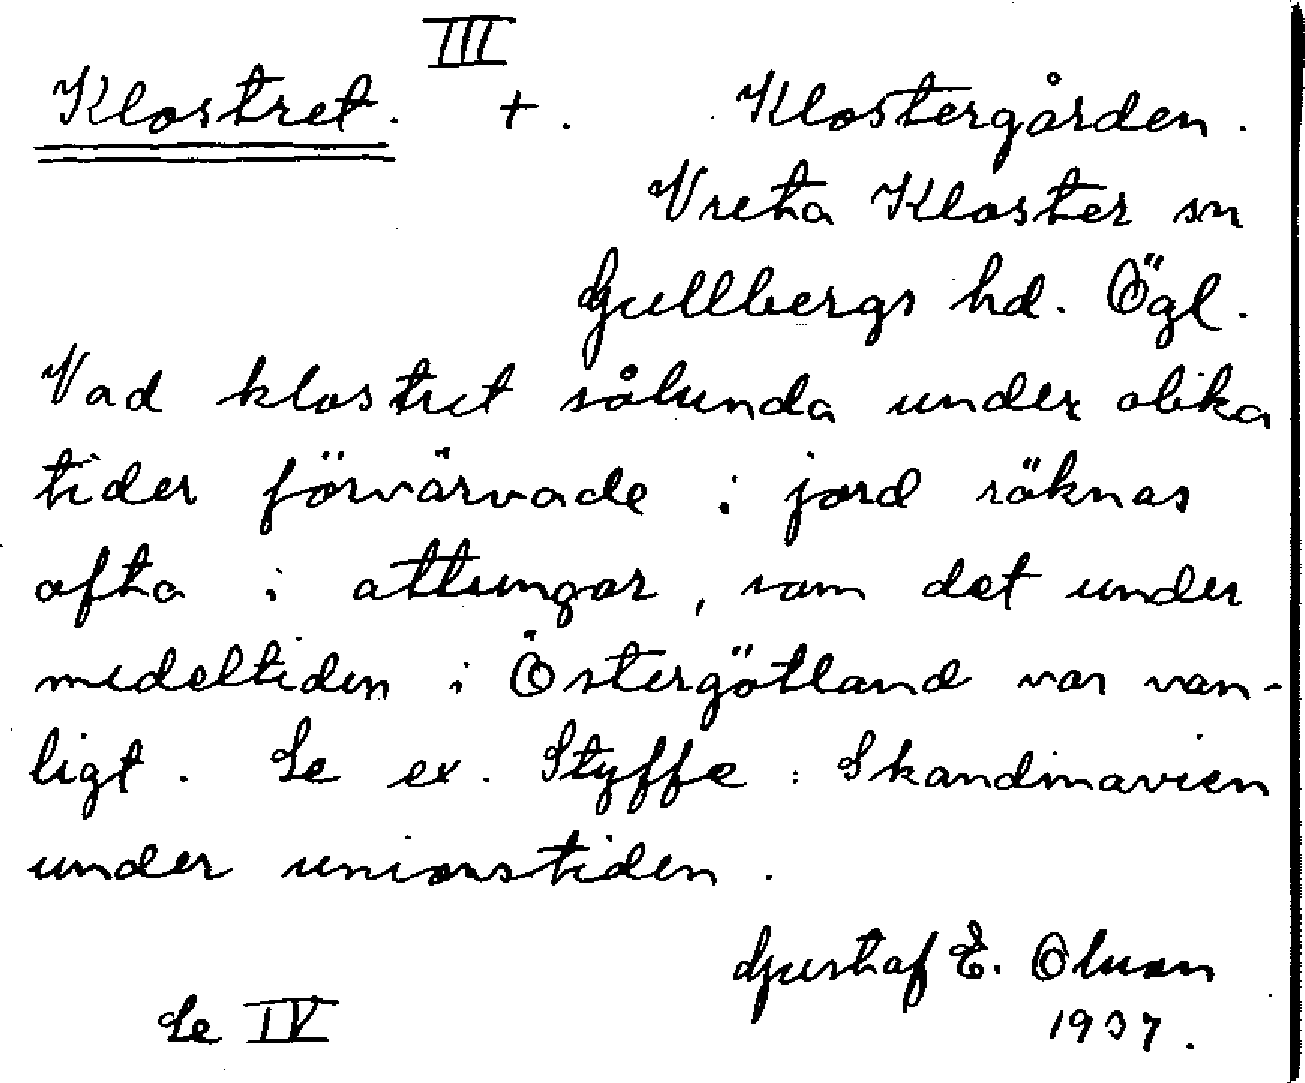 III
Klostret. +. Klostergården.
Vreta Kloster sn
Gullbergs hd. Ögl.
Vad klostret sålunda under olika
tider förvärvade i jord räknas
ofta i attungar, som det under
medeltiden i Östergötland var van-
ligt. Se ex. Styffe: Skandinavien
under unionstiden.
Gustaf E. Olsson
1937.
Se IV